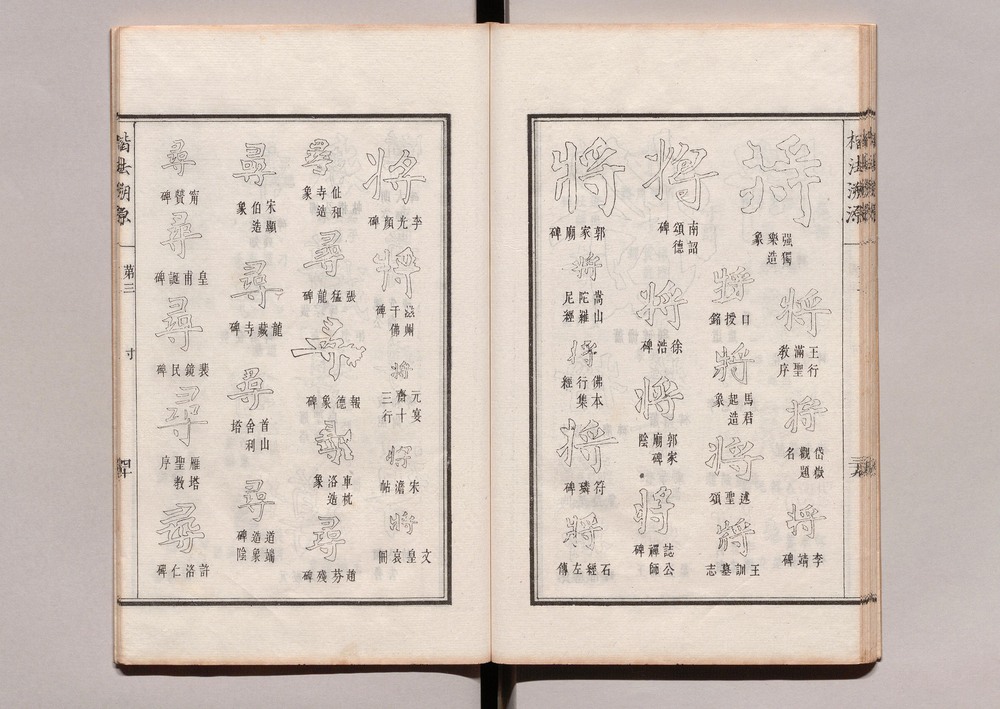 楷法溯源
將
强獨樂造象
將
王行滿聖教序
將
岱嶽觀題名
將
李靖碑
將
口授銘
將
馬君起造象
將
述聖頌
將
王訓墓志
將
南詔頌德碑
將
徐浩碑
將
郭家廟碑陰
將
誌公禪師碑
將
郭家廟碑
將
嵩山陀羅尼經
將
佛本行集經
將
符璘碑
將
石經左傳
將
李光顏碑
將
千佛碑
將
元宴齋十三行
將
宋澹帖
將
文皇哀冊
尋
仳和寺造象
尋
張猛龍碑
尋
報德象碑
尋
車枕洛造象
尋
趙芬殘碑
尋
宋顯伯造象
尋
龍藏寺碑
尋
首山舍利塔
尋
道端造象碑陰
尋
甯贊碑
尋
皇甫誕碑
尋
裴鏡民碑
尋
雁塔聖教序
尋
許洛仁碑
楷法溯源
第三
寸